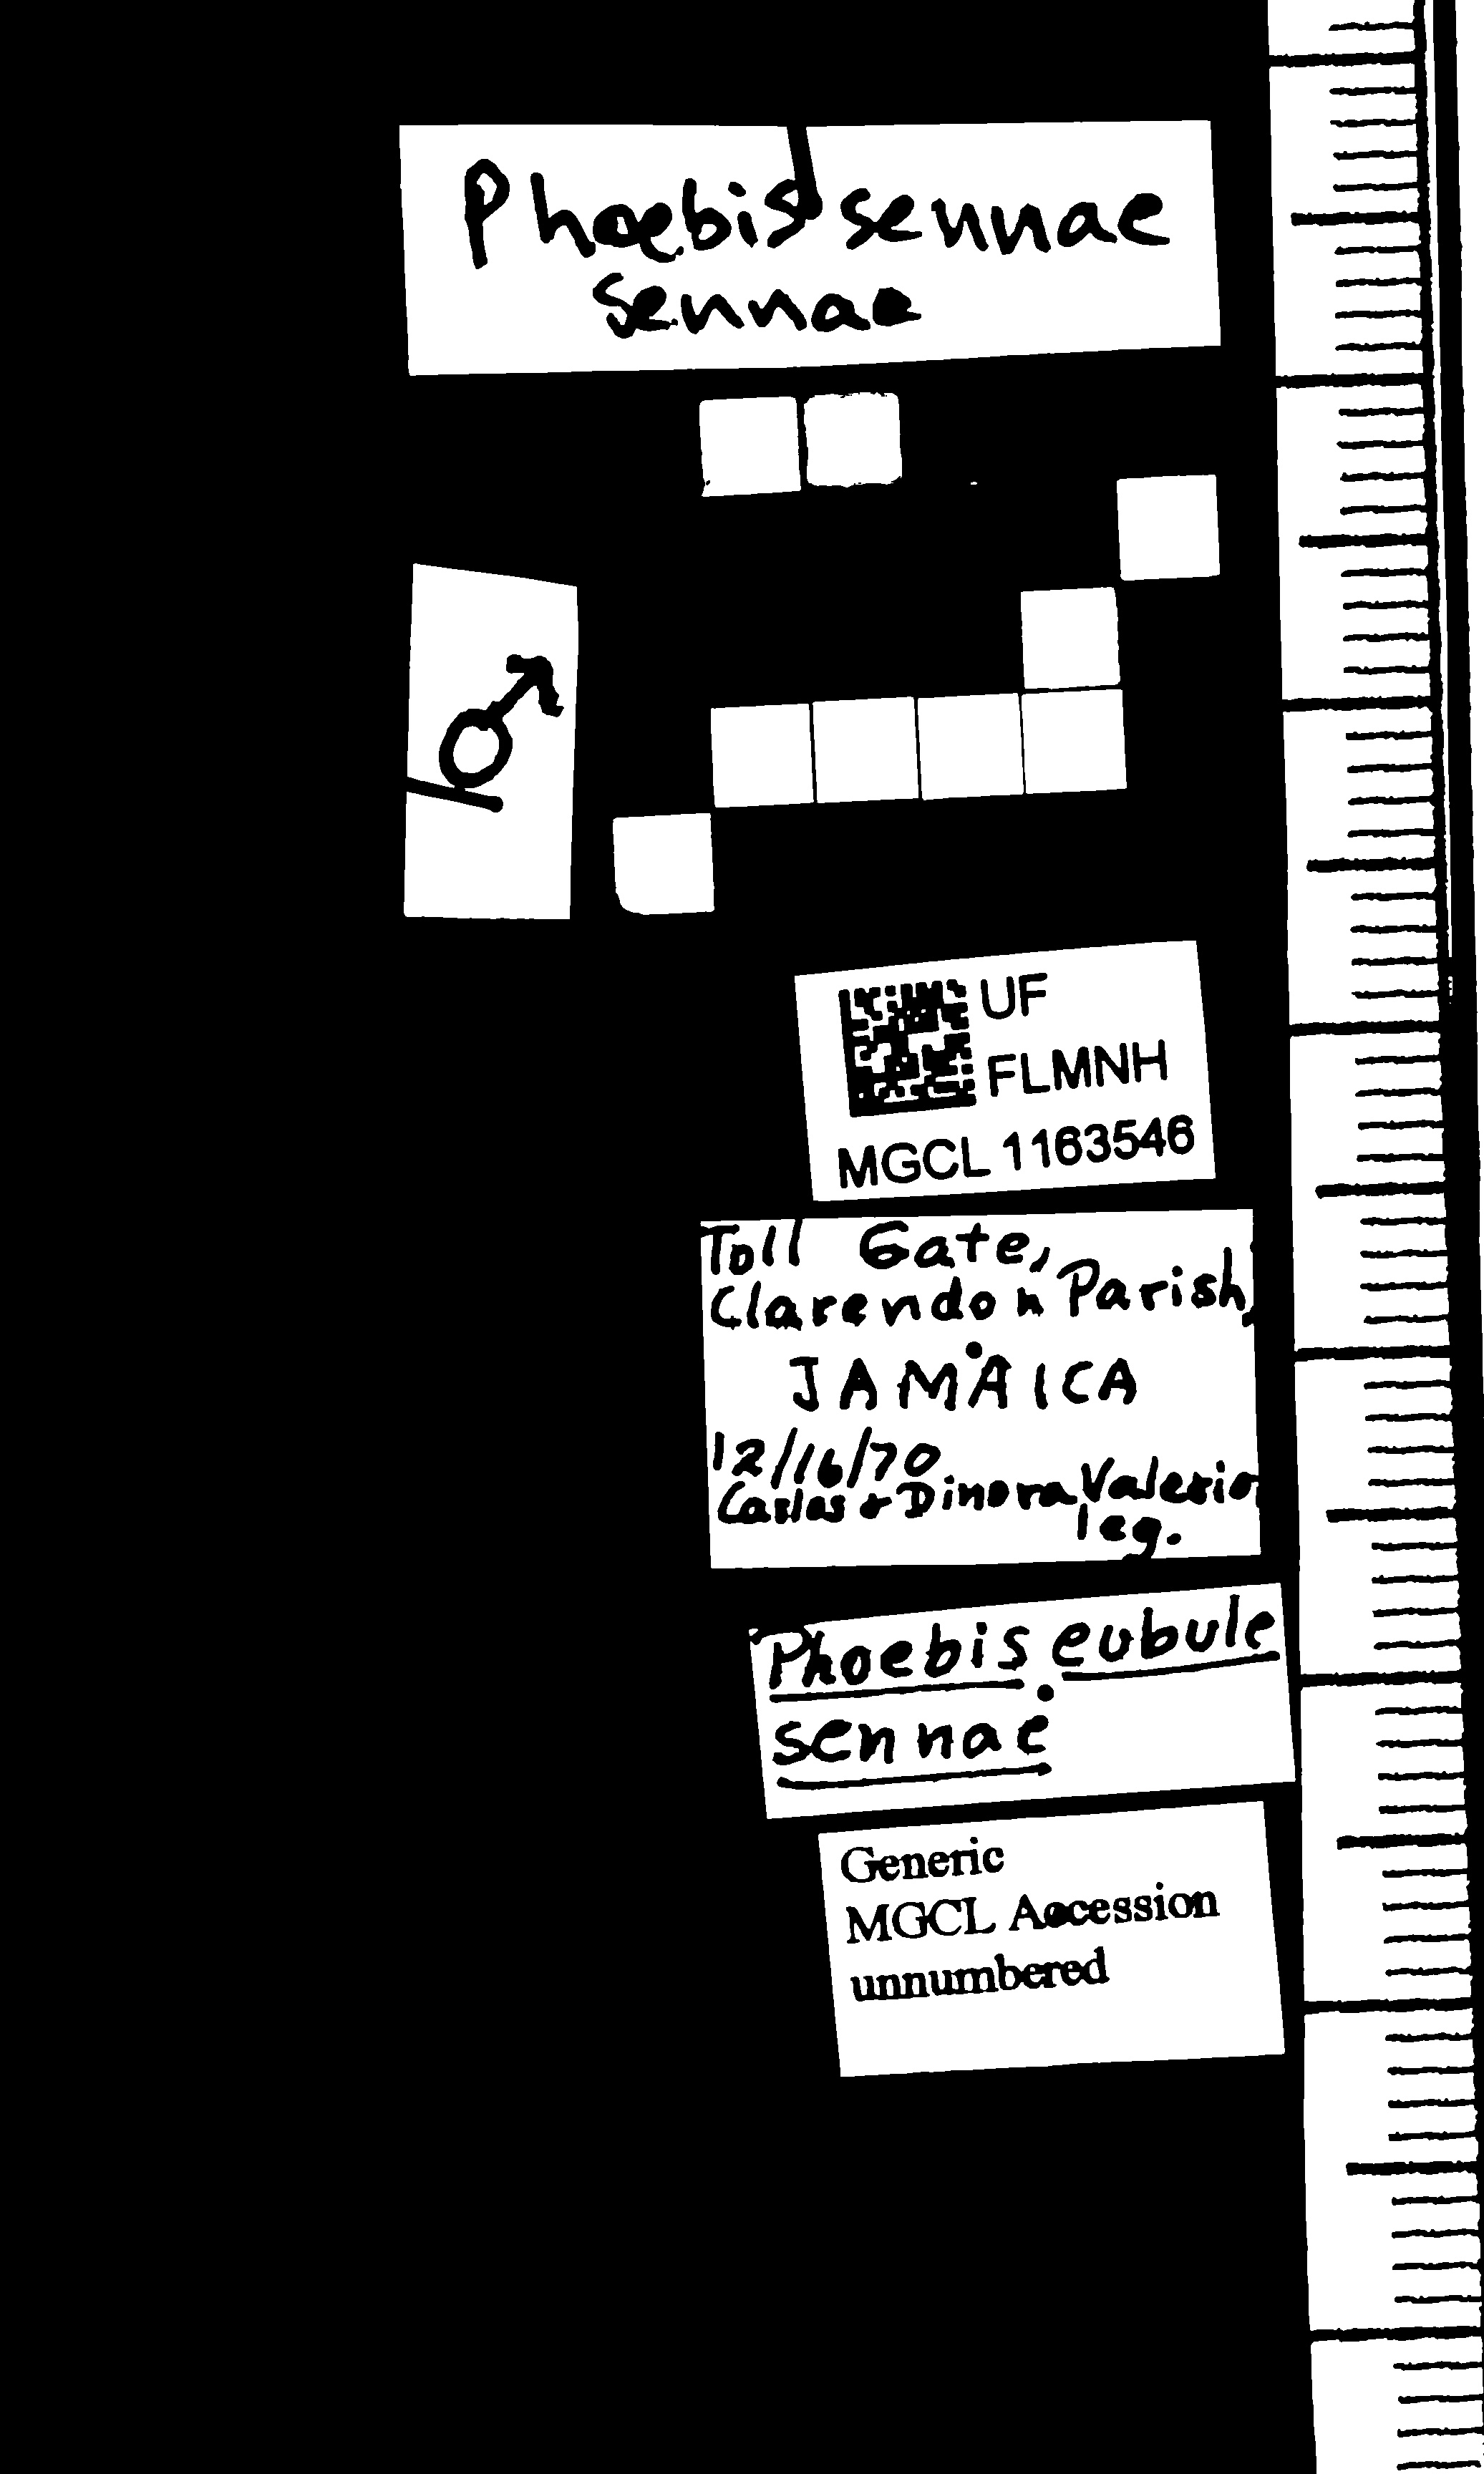 Phoebis sennae
sennae
♂
UF
FLMNH
MGCL 1163546
Toll Gate,
Clarendon Parish,
JAMAICA
12/16/70
Carlos & Dinora Valerio
leg.
Phoebis eubule
sennae
Generic
MGCL Accession
unnumbered